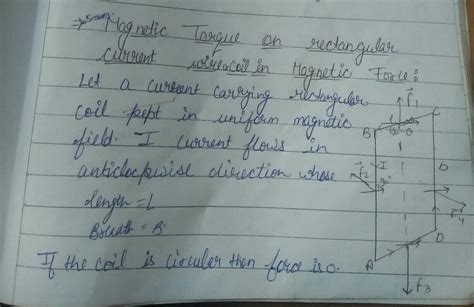 Magnetic Torque on rectangular
current wire/coil in Magnetic Force:
Let a current carrying rectangular
coil kept in uniform magnetic
field. I current flows in
anticlockwise direction whose
length = L
Breadth = B
If the coil is circular than force is 0.
F₁
C
B
I
F₂
b
F₄
A
D
F₃